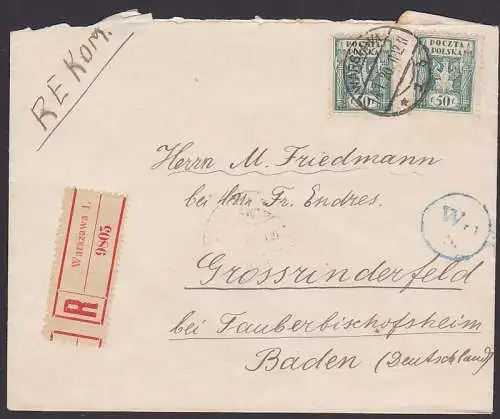 REKOM.
POCZTA
POLSKA
50 F
POCZTA
POLSKA
50 F
WARSZAWA
Herrn M. Friedmann
bei Herrn Fr. Endres.
Grossrinderfeld
bei Tauberbischofsheim
Baden (Deutschland)
R
Warszawa 1.
9805